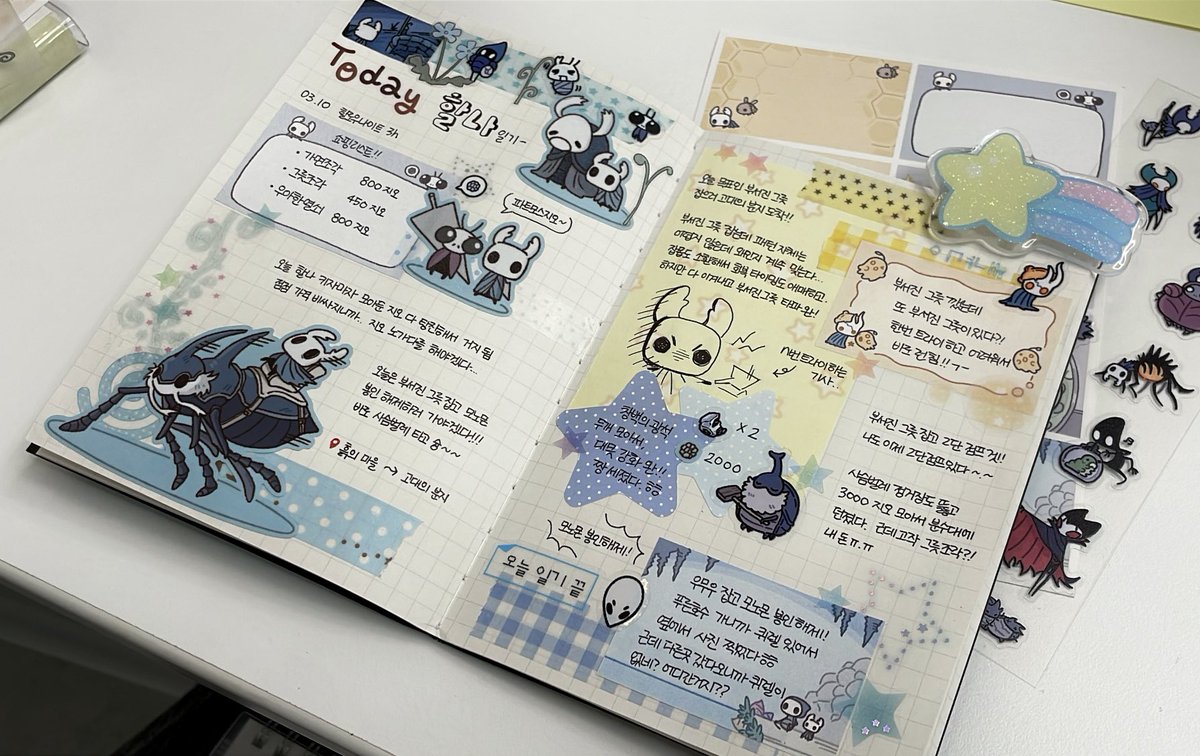 Today 할나 일기~
03.10 할로우나이트 3h
쇼핑리스트!!
• 가면조각 800 지오
• 그릇조각 450 지오
• 우아한 열쇠 800 지오
파트모스지오~
오늘 할나 키자마자 모아둔 지오 다 탕진해서 거지 됨
점점 가격 비싸지니까.. 지오 노가다를 해야겠다...
오늘은 부서진 그릇 잡고 모노몬
봉인 해제하러 가야겠다!!
바로 사슴벌레 타고 슝~~
흙의 마을 → 고대의 분지
오늘 목표인 부서진 그릇
잡으러 고대의 분지 도착!!
부서진 그릇 잡는데 패턴 자체는
어렵지 않은데 왜인지 계속 맞는다...
잡몹도 소환해서 회복 타이밍도 애매하고..
하지만 다 이겨내고 부서진 그릇 타파 완!
n번 트라이하는
기사..
부서진 그릇 깼는데
또 부서진 그릇이 있다?!
한번 트라이 하고 어려워서
바로 런침!! ㄱ-
창백의 광석
두개 모아서
대못 강화 완!!
짱 세졌다 ㅎㅎ
x 2
2000
부서진 그릇 잡고 2단 점프 겟!!
나도 이제 2단점프있다 ~.~
사슴벌레 정거장도 뚫고
3000 지오 모아서 분수대에
던졌다. 근데 고작 그릇조각?!
내 돈 ㅠ.ㅠ
모노몬 봉인해제!
오늘 일기 끝
우무우 잡고 모노몬 봉인 해제!
푸른호수 가니까 퀴렐 있어서
옆에서 사진 찍었다 ㅎㅎ
근데 다른곳 갔다오니까 퀴렐이
없네? 어디간거지??